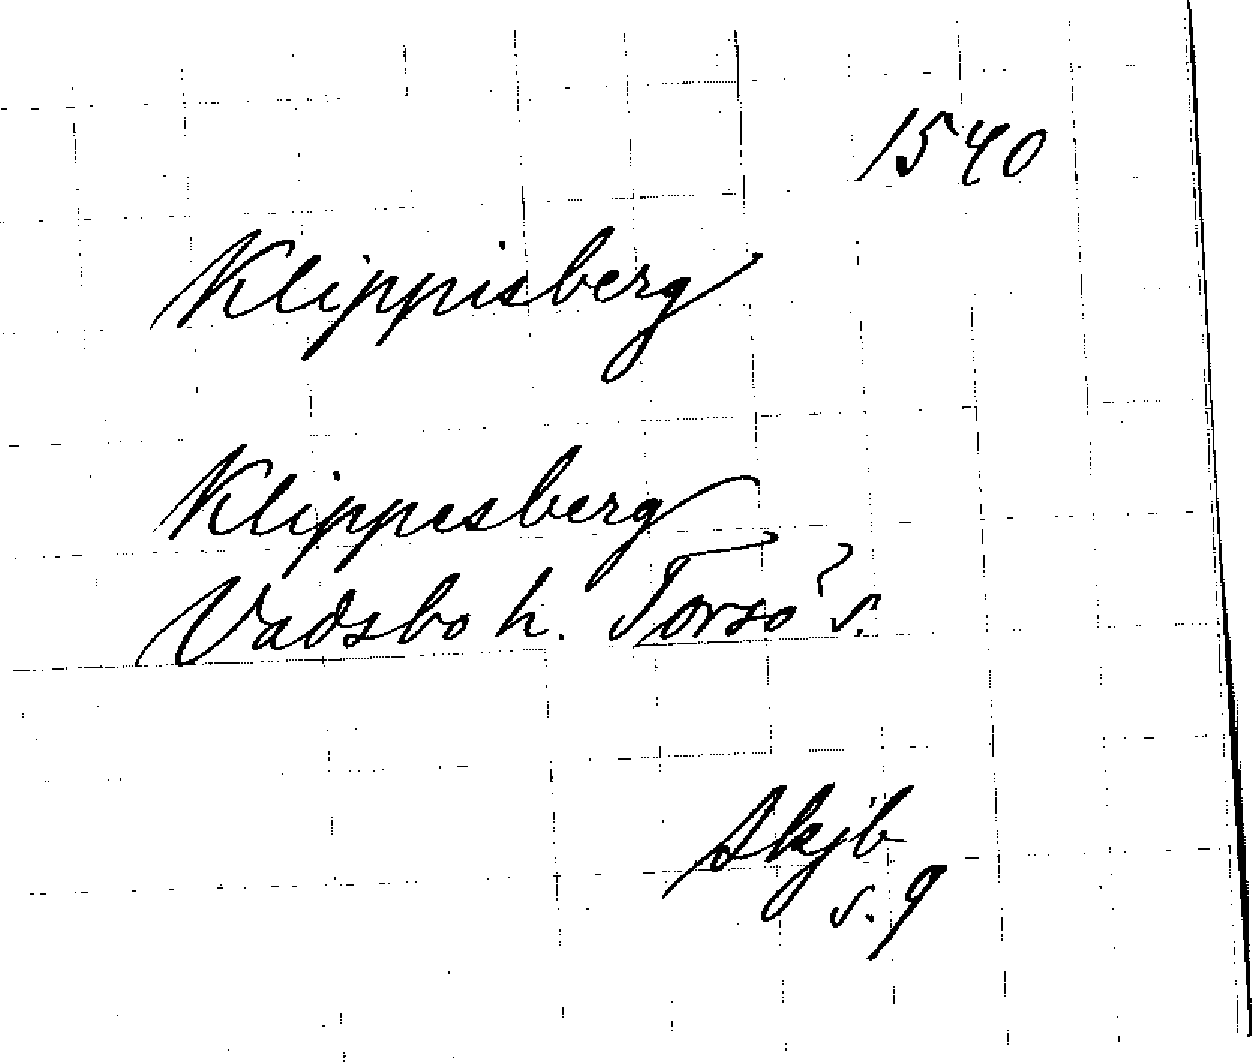 1540
Klippisberg
Klippesberg
Vadsbo h. Torsö? s.
Skjb
s. 9